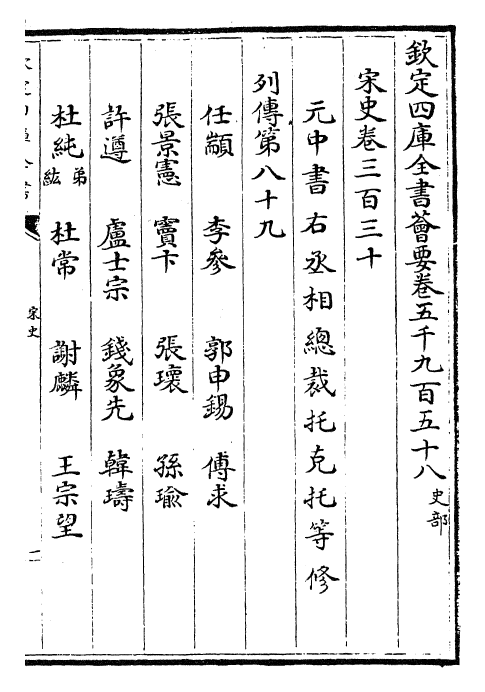 欽定四庫全書薈要卷五千九百五十八 史部
宋史卷三百三十
元中書右丞相總裁托克托等修
列傳第八十九
任顓 李參 郭申錫 傅求
張景憲 竇卞 張瓌 孫瑜
許遵 盧士宗 錢象先 韓璹
杜純 弟紘 杜常 謝麟 王宗望
宋史
一